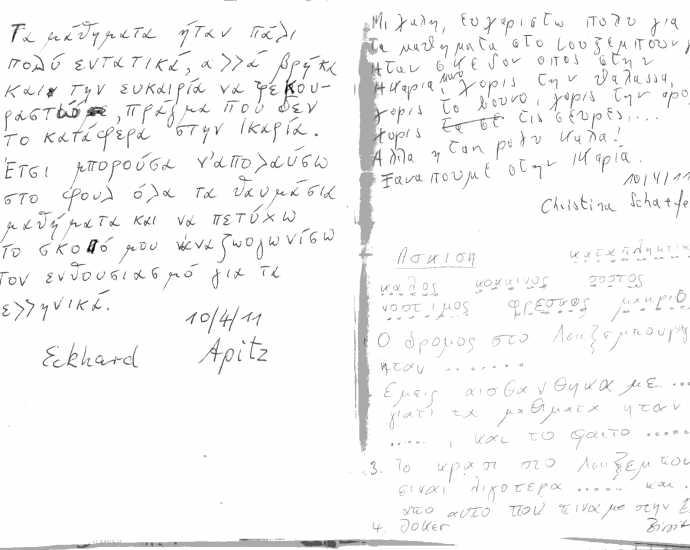 Τα μαθήματα ήταν πάλι
πολύ εντατικά, αλλά βρήκα
και την ευκαιρία να ξεκου-
ραστώ, πράγμα που δεν
το κατάφερα στην Ικαρία.
Έτσι μπορούσα ν'απολαύσω
στο φουλ όλα τα θαυμάσια
μαθήματα και να πετύχω
το σκοπό μου να ζωογωνίσω
τον ενθουσιασμό για τα
ελληνικά.
10/4/11
Eckhard Apitz
Μιχαλη, ευχαριστω πολυ για
τα μαθηματα στο Λουξεμπουργ
Ηταν σχεδον οπως στην
Ηκαρια, μονο χορις την θαλασσα,
χορις το βουνο, χορις την
χορις τις
Αλλα ηταν πολυ καλα!
Ξαναπουμε στην Ικαρια.
10/4/11
Christina Schaefe
Ασκιση καταπληκτικ
καλος κοκκινος ζεστος
νοστιμος φρεσκος μακριο
Ο δρομος στο Λουξεμπουργ
ηταν ........
Εμεις αισθανθηκαμε ...
γιατι τα μαθιματα ηταν
....., και το φαιτο .....
3. Το κρασι στο Λουξεμπου
ειναι λιγοτερο ..... και .
απο αυτο που πιναμε στην
4. Joker